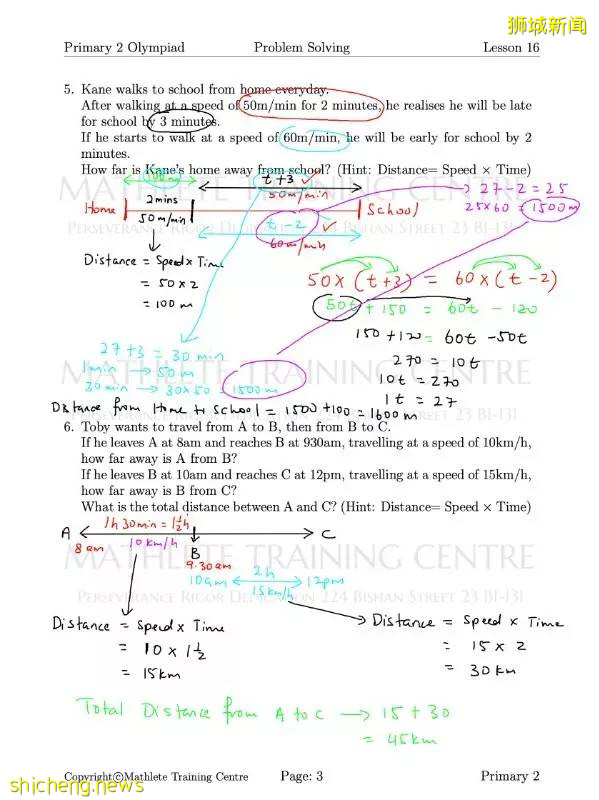 狮城新闻
Primary 2 Olympiad Problem Solving Lesson 16
5. Kane walks to school from home everyday.
After walking at a speed of 50m/min for 2 minutes, he realises he will be late
for school by 3 minutes.
If he starts to walk at a speed of 60m/min, he will be early for school by 2
minutes.
How far is Kane's home away from school? (Hint: Distance= Speed × Time)
MATHLETE TRAINING CENTRE
100m t+3 ✓ 27-2 = 25
2mins 50m/min 25x60 = 1500m
Home 50m/min t-2 ✓ School
PERSEVERANCE RIGOR DEDICATION 224 BISHAN STREET 23 B1-131
60m/min
Distance = Speed x Time
= 50 x 2
= 100m
50 x (t+3) = 60 x (t-2)
50t + 150 = 60t - 120
150 + 120 = 60t - 50t
270 = 10t
10t = 270
1t = 27
27+3 = 30 min
1min → 50m
30 min → 30x50 = 1500m
MATHLETE TRAINING CENTRE
Distance from Home to School = 1500 + 100 = 1600m
PERSEVERANCE RIGOR DEDICATION 224 BISHAN STREET 23 B1-131
6. Toby wants to travel from A to B, then from B to C.
If he leaves A at 8am and reaches B at 930am, travelling at a speed of 10km/h,
how far away is A from B?
If he leaves B at 10am and reaches C at 12pm, travelling at a speed of 15km/h,
how far away is B from C?
What is the total distance between A and C? (Hint: Distance= Speed × Time)
1h 30min = 1½h
A C
8am 10km/h B
9.30am
MATHLETE TRAINING CENTRE
10am 2h 12pm
15km/h
PERSEVERANCE RIGOR DEDICATION 224 BISHAN STREET 23 B1-131
Distance = Speed x Time
= 10 x 1½
= 15km
Distance = Speed x Time
= 15 x 2
= 30km
Total Distance from A to C → 15 + 30
= 45km
Copyright©Mathlete Training Centre Page: 3 Primary 2
shicheng.news